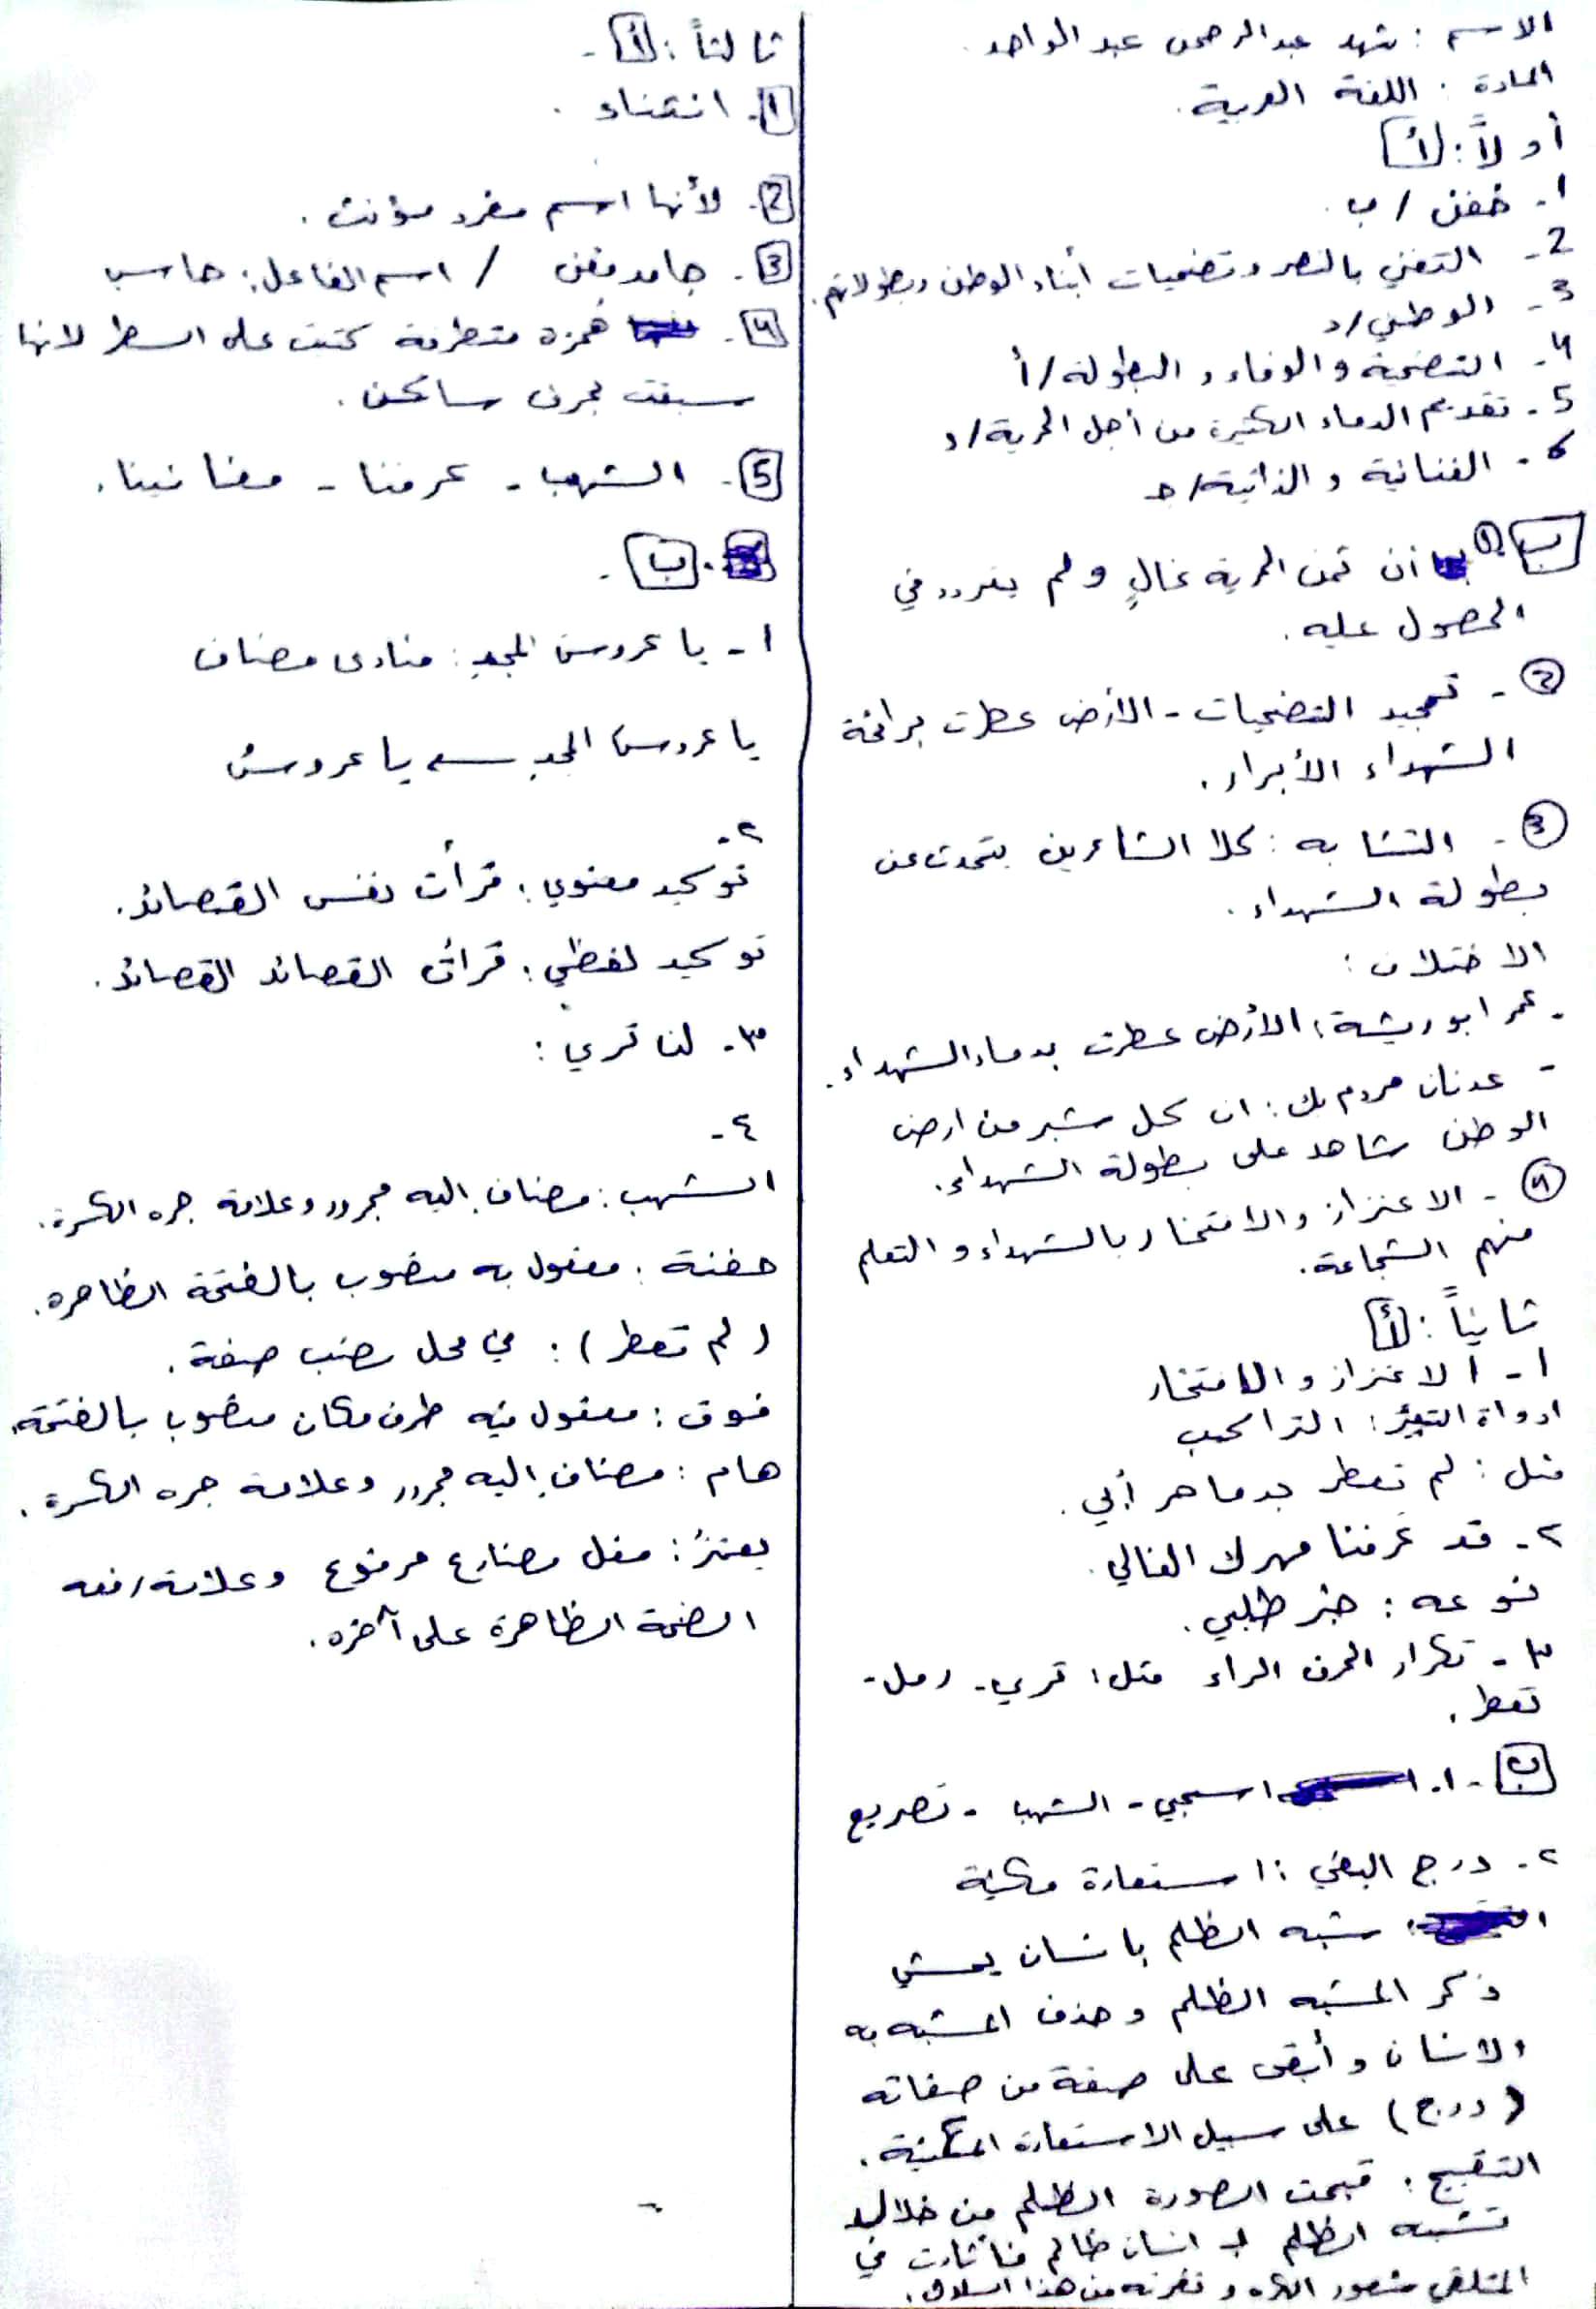 الاسم : شهد عبدالرحمن عبد الواحد
المادة : اللغة العربية .
أولاً : أ
1- خفض / ب .
2- التغني بالنصر وتضحيات أبناء الوطن وبطولاتهم .
3- الوطني / د
4- التضحية والوفاء والبطولة / أ
5- تقديم الدماء الكثيرة من أجل الحرية / د
6- الغنائية والذاتية / جـ
ب 1- أن ثمن الحرية غالٍ ولم يتردد في
الحصول عليه .
2- تمجيد التضحيات - الأرض عطرت برائحة
الشهداء الأبرار .
3- التشابه : كلا الشاعرين يتحدث عن
بطولة الشهداء .
الاختلاف :
- عمر ابو ريشة : الأرض عطرت بدماء الشهداء .
- عدنان مردم بك : ان كل شبر من ارض
الوطن شاهد على بطولة الشهداء .
4- الاعتزاز والافتخار بالشهداء و التعلم
منهم الشجاعة .
ثانياً : أ
1- الاعتزاز والافتخار
ادواة التعبير : التراكيب
مثل : لم تعطر بدما حر أبي .
٢- قد عرفنا مهرك الغالي .
نوعه : خبر طلبي .
٣- تكرار الحرف الراء مثل : تري - رمل -
تعطر .
ب - ١- اسحبي - الشهبا - تصريع
٢- درج البغي : استعارة مكنية
شبه الظلم بانسان يمشي
ذكر المشبه الظلم وحذف المشبه به
الانسان وأبقى على صفة من صفاته
( درج ) على سبيل الاستعارة المكنية .
التقبيح : قبحت الصورة الظلم من خلال
تشبه الظلم بـ انسان ظالم فأثارت في
المتلقي شعور الكره و نفرته من هذا السلوك .
ثالثاً : أ -
1- انتقناء .
2- لأنها اسم مفرد مؤنث .
3- جامد / اسم الفاعل : حاسب
4- همزة متطرفة كتبت على السطر لانها
سبقت بحرف ساكن .
5- الشهبا - عرفنا - مغانينا .
ب -
١- يا عروسَ المجدِ : منادى مضاف
يا عروسَ المجدِ يا عروسُ
٢-
توكيد معنوي : قرأت نفس القصائد .
توكيد لفظي : قرأت القصائد القصائد .
٣- لن تري :
٤-
الشهب : مضاف إليه مجرور وعلامة جره الكسرة .
حفنة : مفعول به منصوب بالفتحة الظاهرة .
( لم تعطر ) : في محل نصب صفة .
فوق : مفعول فيه ظرف مكان منصوب بالفتحة .
هام : مضاف إليه مجرور وعلامة جره الكسرة .
يعتزُ : فعل مضارع مرفوع وعلامة رفعه
الضمة الظاهرة على آخره .